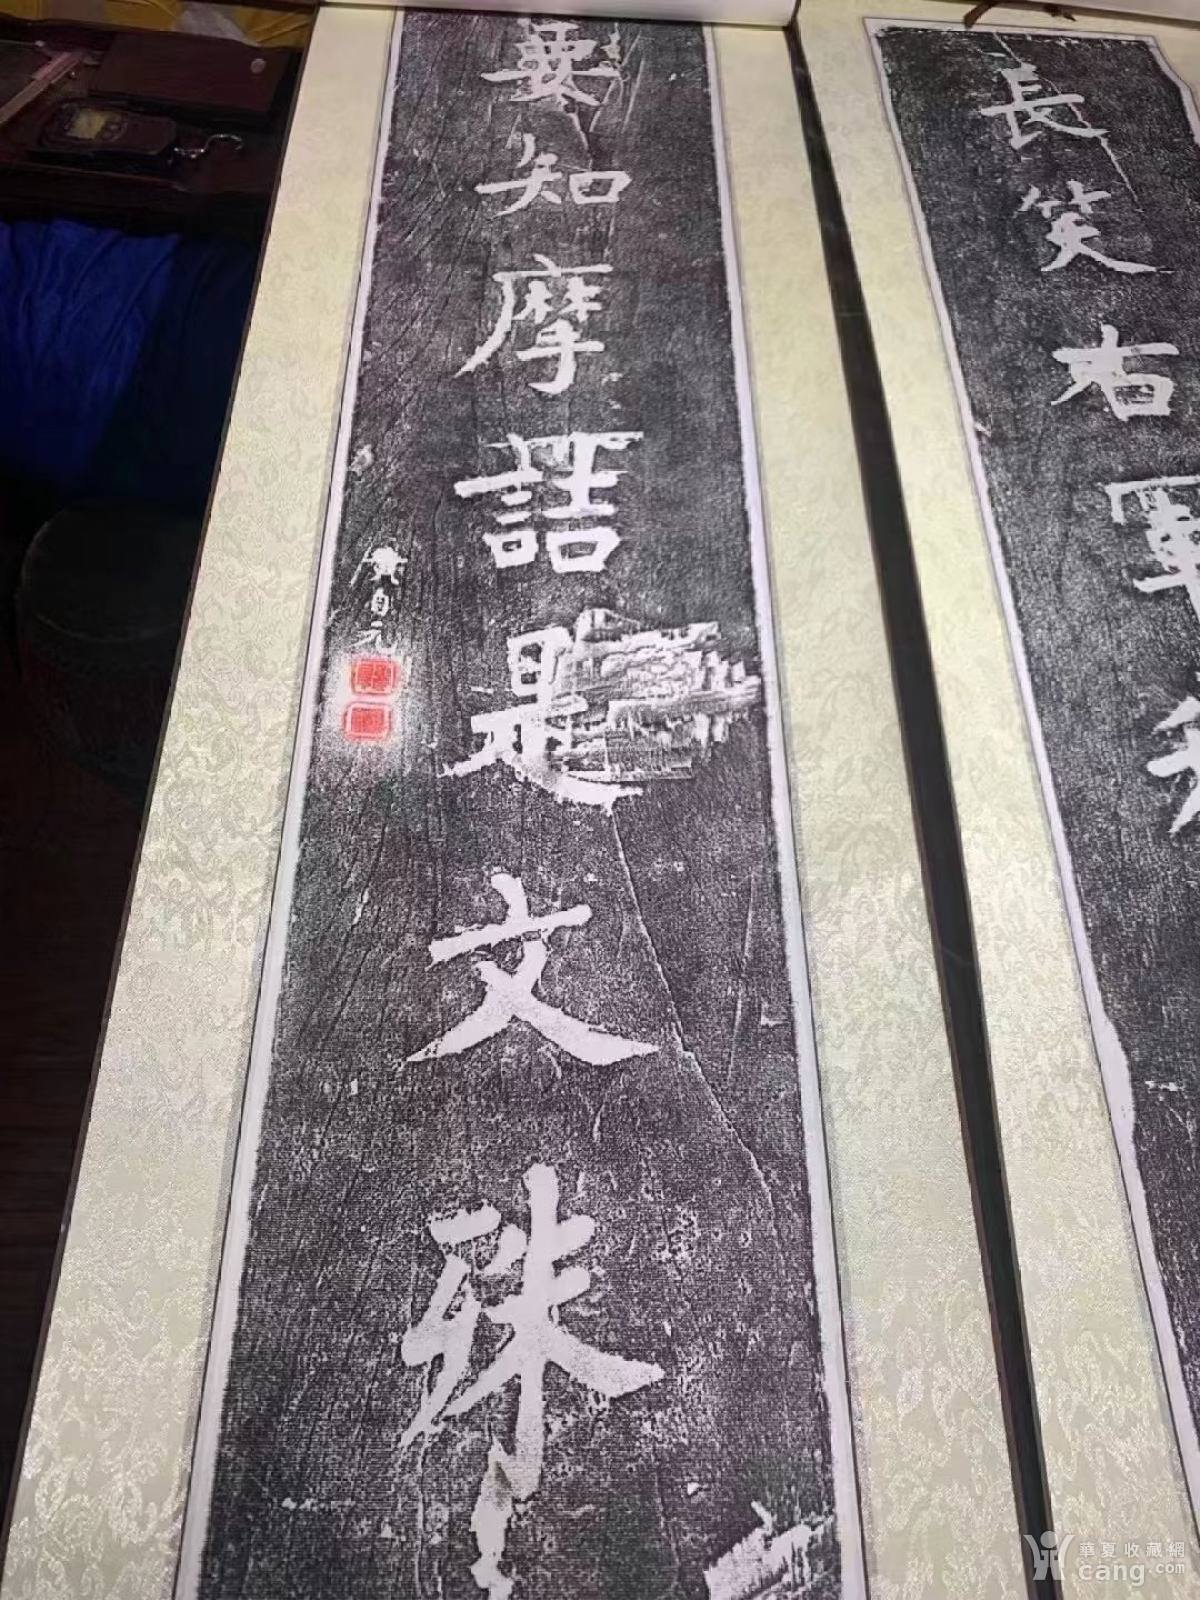 長笑右軍
要知摩詰是文殊
黃自元
華夏收藏網
cang.com